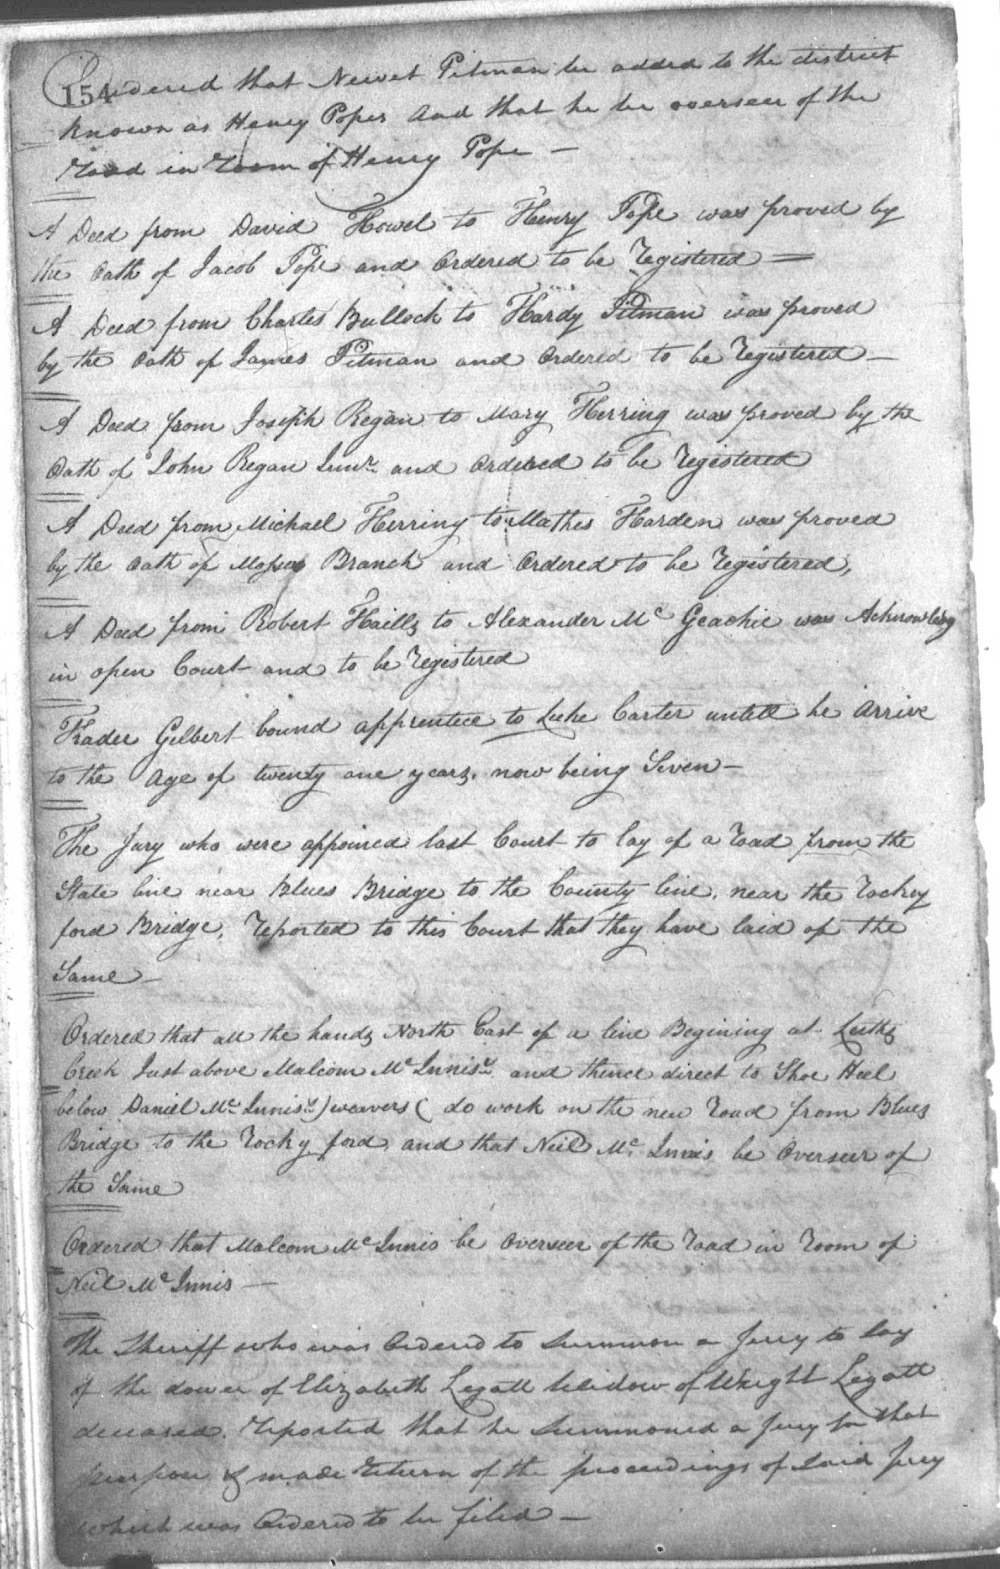 154
Ordered that Newet Pitman be added to the district
known as Henry Popes and that he be overseer of the
Road in Room of Henry Pope —
A Deed from David Howel to Henry Pope was proved by
the Oath of Jacob Pope and Ordered to be Registered =
A Deed from Charles Bullock to Hardy Pitman was proved
by the Oath of James Pitman and Ordered to be Registered —
A Deed from Joseph Regan to Mary Herring was proved by the
Oath of John Regan Junr. and Ordered to be Registered
A Deed from Michael Herring to Mathes Harden was proved
by the Oath of Moses Branch and Ordered to be Registered,
A Deed from Robert Hails to Alexander Mc Geachie was Acknowledg
in open Court and to be Registered
Kader Gilbert bound apprentice to Luke Carter untill he Arrive
to the Age of twenty one years, now being Seven —
The Jury who were appoined last Court to lay of a Road from the
State line near Blues Bridge to the County line, near the Rockey
ford Bridge, Reported to this Court that they have laid of the
Same —
Ordered that all the hands North East of a line Begining at Leiths
Creek Just above Malcom McInnis's and thence direct to Shoe Heel
below Daniel McInnis's) weavers ( do work on the new Road from Blues
Bridge to the Rocky ford, and that Neil Mc. Innis be Overseer of
the Same
Ordered that Malcom McInnis be Overseer of the Road in Room of
Neil McInnis —
The Sheriff who was Ordered to Summon a Jury to lay
of the dower of Elizabeth Legatt Widow of Wright Legatt
deceased. Reported that he Summoned a Jury for that
purpose & made Return of the proceedings of Said Jury
which was Ordered to be filed —